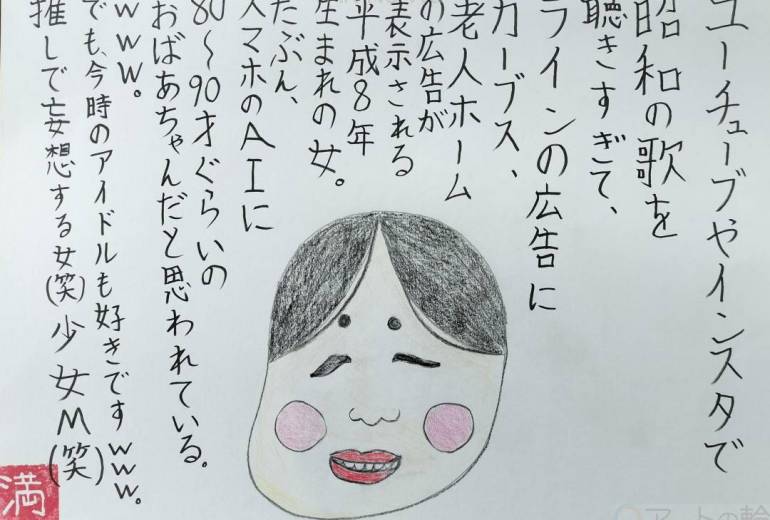 ユーチューブやインスタで
昭和の歌を
聴きすぎて、
ラインの広告に
カーブス、
老人ホーム
の広告が
表示される
平成8年
生まれの女。
たぶん、
スマホのAIに
80〜90才ぐらいの
おばあちゃんだと思われている。
www。
でも、今時のアイドルも好きですwww。
推しで妄想する女(笑)少女M(笑)
満
アートの輪